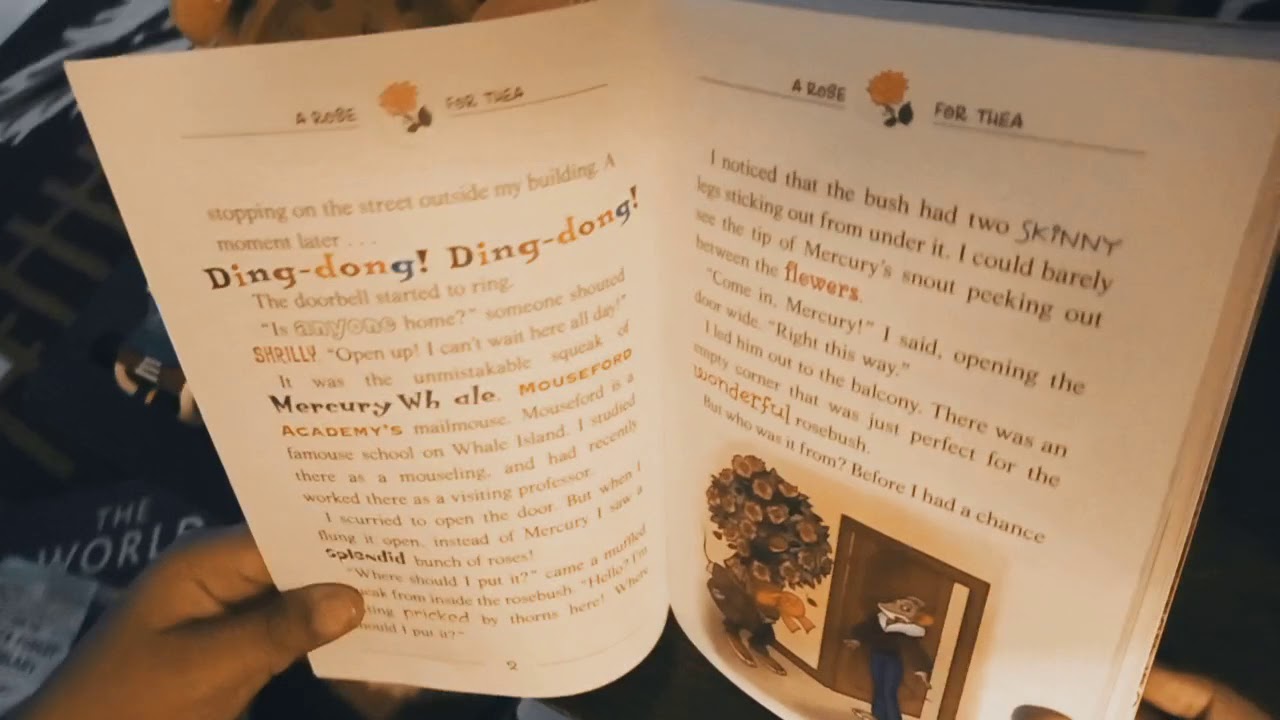 A ROSE FOR THEA
stopping on the street outside my building. A
moment later . . .
Ding-dong! Ding-dong!
The doorbell started to ring.
"Is anyone home?" someone shouted
SHRILLY "Open up! I can't wait here all day!"
It was the unmistakable squeak of
Mercury Wh ale, MOUSEFORD
ACADEMY'S mailmouse. Mouseford is a
famouse school on Whale Island. I studied
there as a mouseling, and had recently
worked there as a visiting professor.
I scurried to open the door. But when I
flung it open, instead of Mercury I saw a
splendid bunch of roses!
"Where should I put it?" came a muffled
from inside the rosebush. "Hello? I'm
pricked by thorns here! Where
should I put it?"
2
A ROSE FOR THEA
I noticed that the bush had two SKINNY
legs sticking out from under it. I could barely
see the tip of Mercury's snout peeking out
between the flowers.
"Come in, Mercury!" I said, opening the
door wide. "Right this way."
I led him out to the balcony. There was an
empty corner that was just perfect for the
wonderful rosebush.
But who was it from? Before I had a chance
THE
WORLD